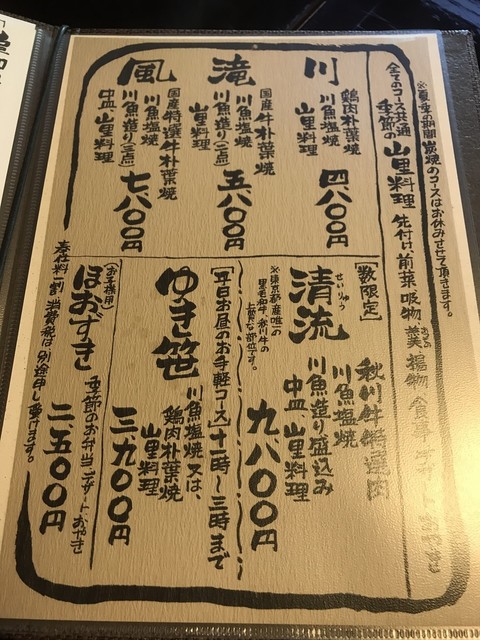 ※夏季の期間 炭焼のコースはお休みさせて頂きます。
全てのコース共通
季節の山里料理 先付け 前菜 吸物 煮 揚物 食事 デザート
川
鶏肉朴葉焼
川魚塩焼
山里料理
四、八〇〇円
滝
国産牛朴葉焼
川魚塩焼
川魚造り(三点)
山里料理
五、八〇〇円
風
国産特選牛朴葉焼
川魚塩焼
川魚造り(三点)
中皿 山里料理
七、八〇〇円
[数限定]
清流
せいりゅう
※東京都産唯一の
黒毛和牛、秋川牛の
上質な部位です。
秋川牛特選肉
川魚塩焼
川魚造り盛込み
中皿 山里料理
九、八〇〇円
[平日お昼のお手軽コース]十一時〜三時まで
ゆき笹
川魚塩焼又は、
鶏肉朴葉焼
山里料理
三、九〇〇円
(お子様用)
ほおずき
季節のお弁当 デザート おやき
二、五〇〇円
奉仕料一割 消費税は別途申し受けます。